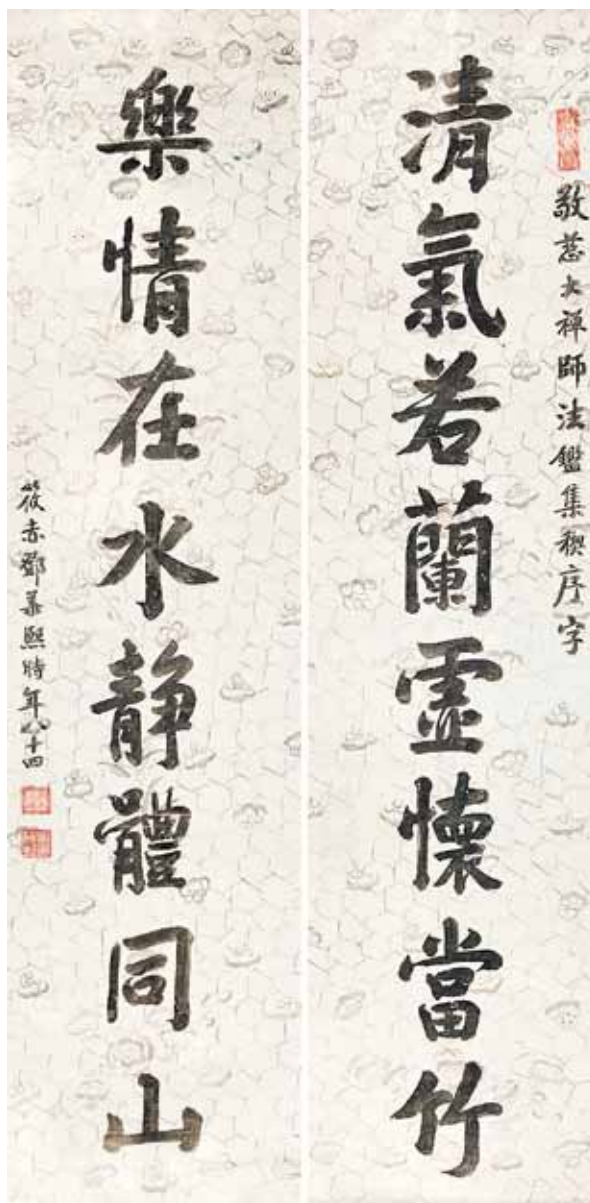 敬慈大禪師法鑑集稧序字
清氣若蘭虛懷當竹
樂情在水靜體同山
筱赤鄧華熙時年八十四